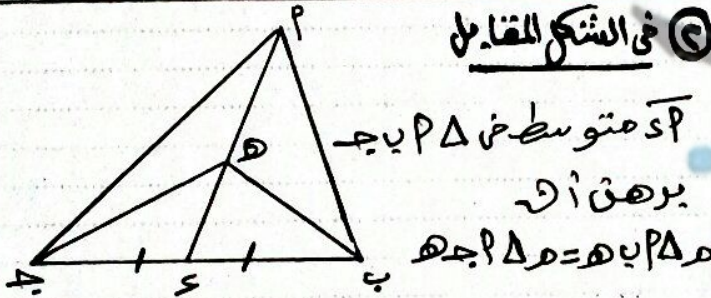 ٢ في الشكل المقابل
أ
هـ
أء متوسط في Δ أ ب جـ
برهن أن
م Δ أ ب هـ = م Δ أ جـ هـ
جـ
ء
ب